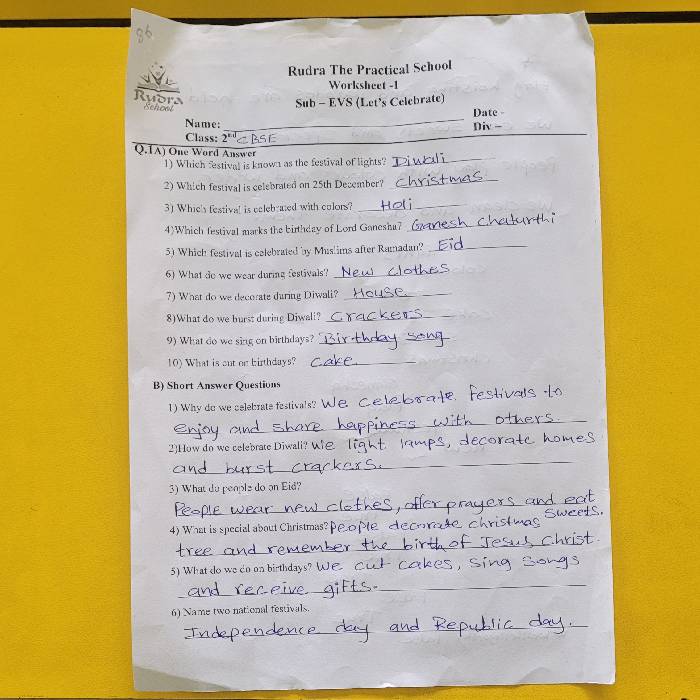 86
Rudra The Practical School
Worksheet -1
Rudra
School
Sub – EVS (Let's Celebrate)
Name:
Date -
Class: 2nd CBSE
Div –
Q.1A) One Word Answer
1) Which festival is known as the festival of lights? Diwali
2) Which festival is celebrated on 25th December? Christmas
3) Which festival is celebrated with colors? Holi
4)Which festival marks the birthday of Lord Ganesha? Ganesh Chaturthi
5) Which festival is celebrated by Muslims after Ramadan? Eid
6) What do we wear during festivals? New clothes
7) What do we decorate during Diwali? House
8)What do we burst during Diwali? Crackers
9) What do we sing on birthdays? Birthday song
10) What is cut on birthdays? Cake
B) Short Answer Questions
1) Why do we celebrate festivals? We celebrate festivals to
enjoy and share happiness with others.
2)How do we celebrate Diwali? We light lamps, decorate homes
and burst crackers.
3) What do people do on Eid?
People wear new clothes, offer prayers and eat
sweets.
4) What is special about Christmas? People decorate christmas
tree and remember the birth of Jesus Christ.
5) What do we do on birthdays? We cut cakes, sing songs
and receive gifts.
6) Name two national festivals.
Independence day and Republic day.